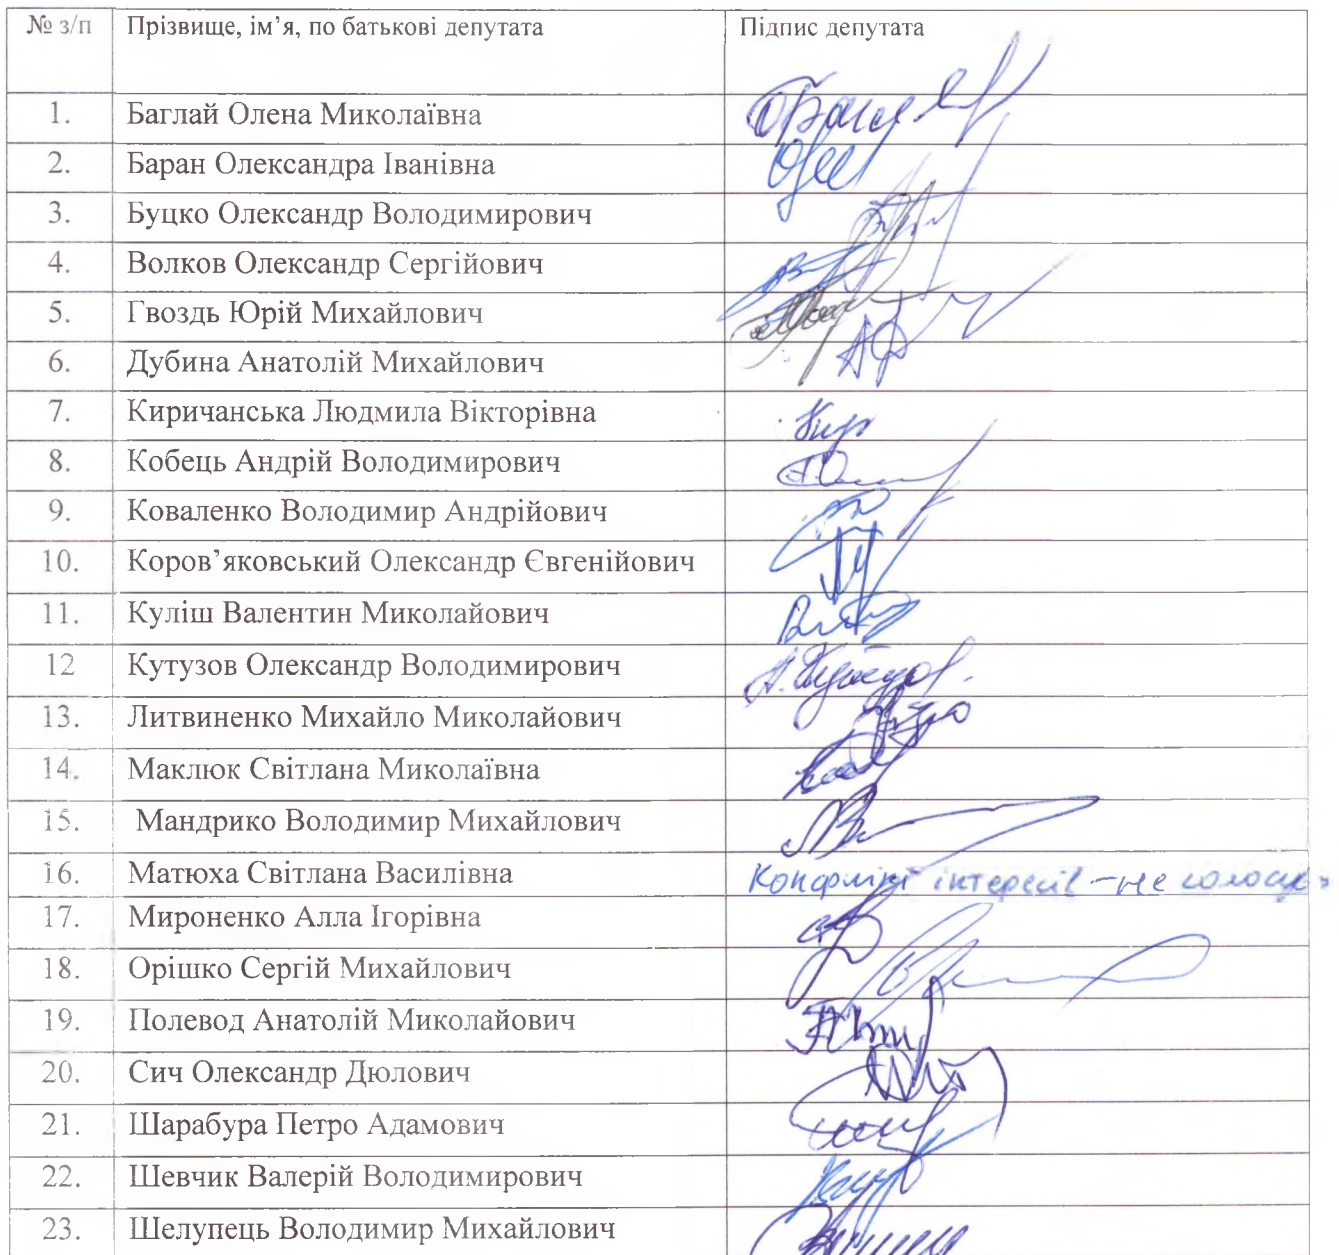 № з/п Прізвище, ім’я, по батькові депутата Підпис депутата
1. Баглай Олена Миколаївна
2. Баран Олександра Іванівна
3. Буцко Олександр Володимирович
4. Волков Олександр Сергійович
5. Гвоздь Юрій Михайлович
6. Дубина Анатолій Михайлович
7. Киричанська Людмила Вікторівна
8. Кобець Андрій Володимирович
9. Коваленко Володимир Андрійович
10. Коров’яковський Олександр Євгенійович
11. Куліш Валентин Миколайович
12 Кутузов Олександр Володимирович
13. Литвиненко Михайло Миколайович
14. Маклюк Світлана Миколаївна
15. Мандрико Володимир Михайлович
16. Матюха Світлана Василівна Конфлікт інтересів - не голосую
17. Мироненко Алла Ігорівна
18. Орішко Сергій Михайлович
19. Полевод Анатолій Миколайович
20. Сич Олександр Дюлович
21. Шарабура Петро Адамович
22. Шевчик Валерій Володимирович
23. Шелупець Володимир Михайлович